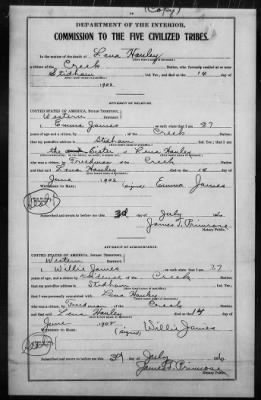 (Copy)
DEPARTMENT OF THE INTERIOR,
COMMISSION TO THE FIVE CIVILIZED TRIBES.
In the matter of the death of Lena Hawley
a citizen of the Creek Nation, who formerly resided at or near
Stidham, Ind. Ter., and died on the 14 day of
AFFIDAVIT OF RELATIVE.
UNITED STATES OF AMERICA, INDIAN TERRITORY,
Western DISTRICT.
I, Emma James, on oath state that I am 37
years of age and a citizen, by, of the Creek Nation;
that my postoffice address is Stidham, Ind. Ter.; that I am
the Sister of Lena Hawley
who was a citizen, by Freedman, of the Creek Nation
and that said Lena Hawley died on the 14 day of
June, 1902
WITNESSES TO MARK: (signed) Emma James
Subscribed and sworn to before me this 3d day of July
James T. Primrose
Notary Public.
AFFIDAVIT OF ACQUAINTANCE.
UNITED STATES OF AMERICA, INDIAN TERRITORY,
Western DISTRICT.
I, Willie James, on oath state that I am 37
years of age, and a citizen by of the Creek Nation;
that my postoffice address is Stidham, Ind. Ter.;
that I was personally acquainted with Lena Hawley
who was a citizen, by Freedman, of the Creek Nation
and that said Lena Hawley died on the 14 day of
June, 1902
WITNESSES TO MARK: (signed) Willie James
Subscribed and sworn to before me this 3d day of July
James T. Primrose
Notary Public.